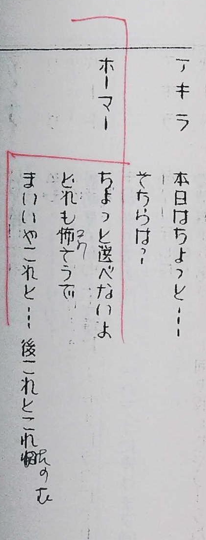 アキラ　本日はちょっと…
そちらは?
ホーマー　ちょっと選べないよ
どれも怖そうで
まいいやこれと… 後これとこれたのむ